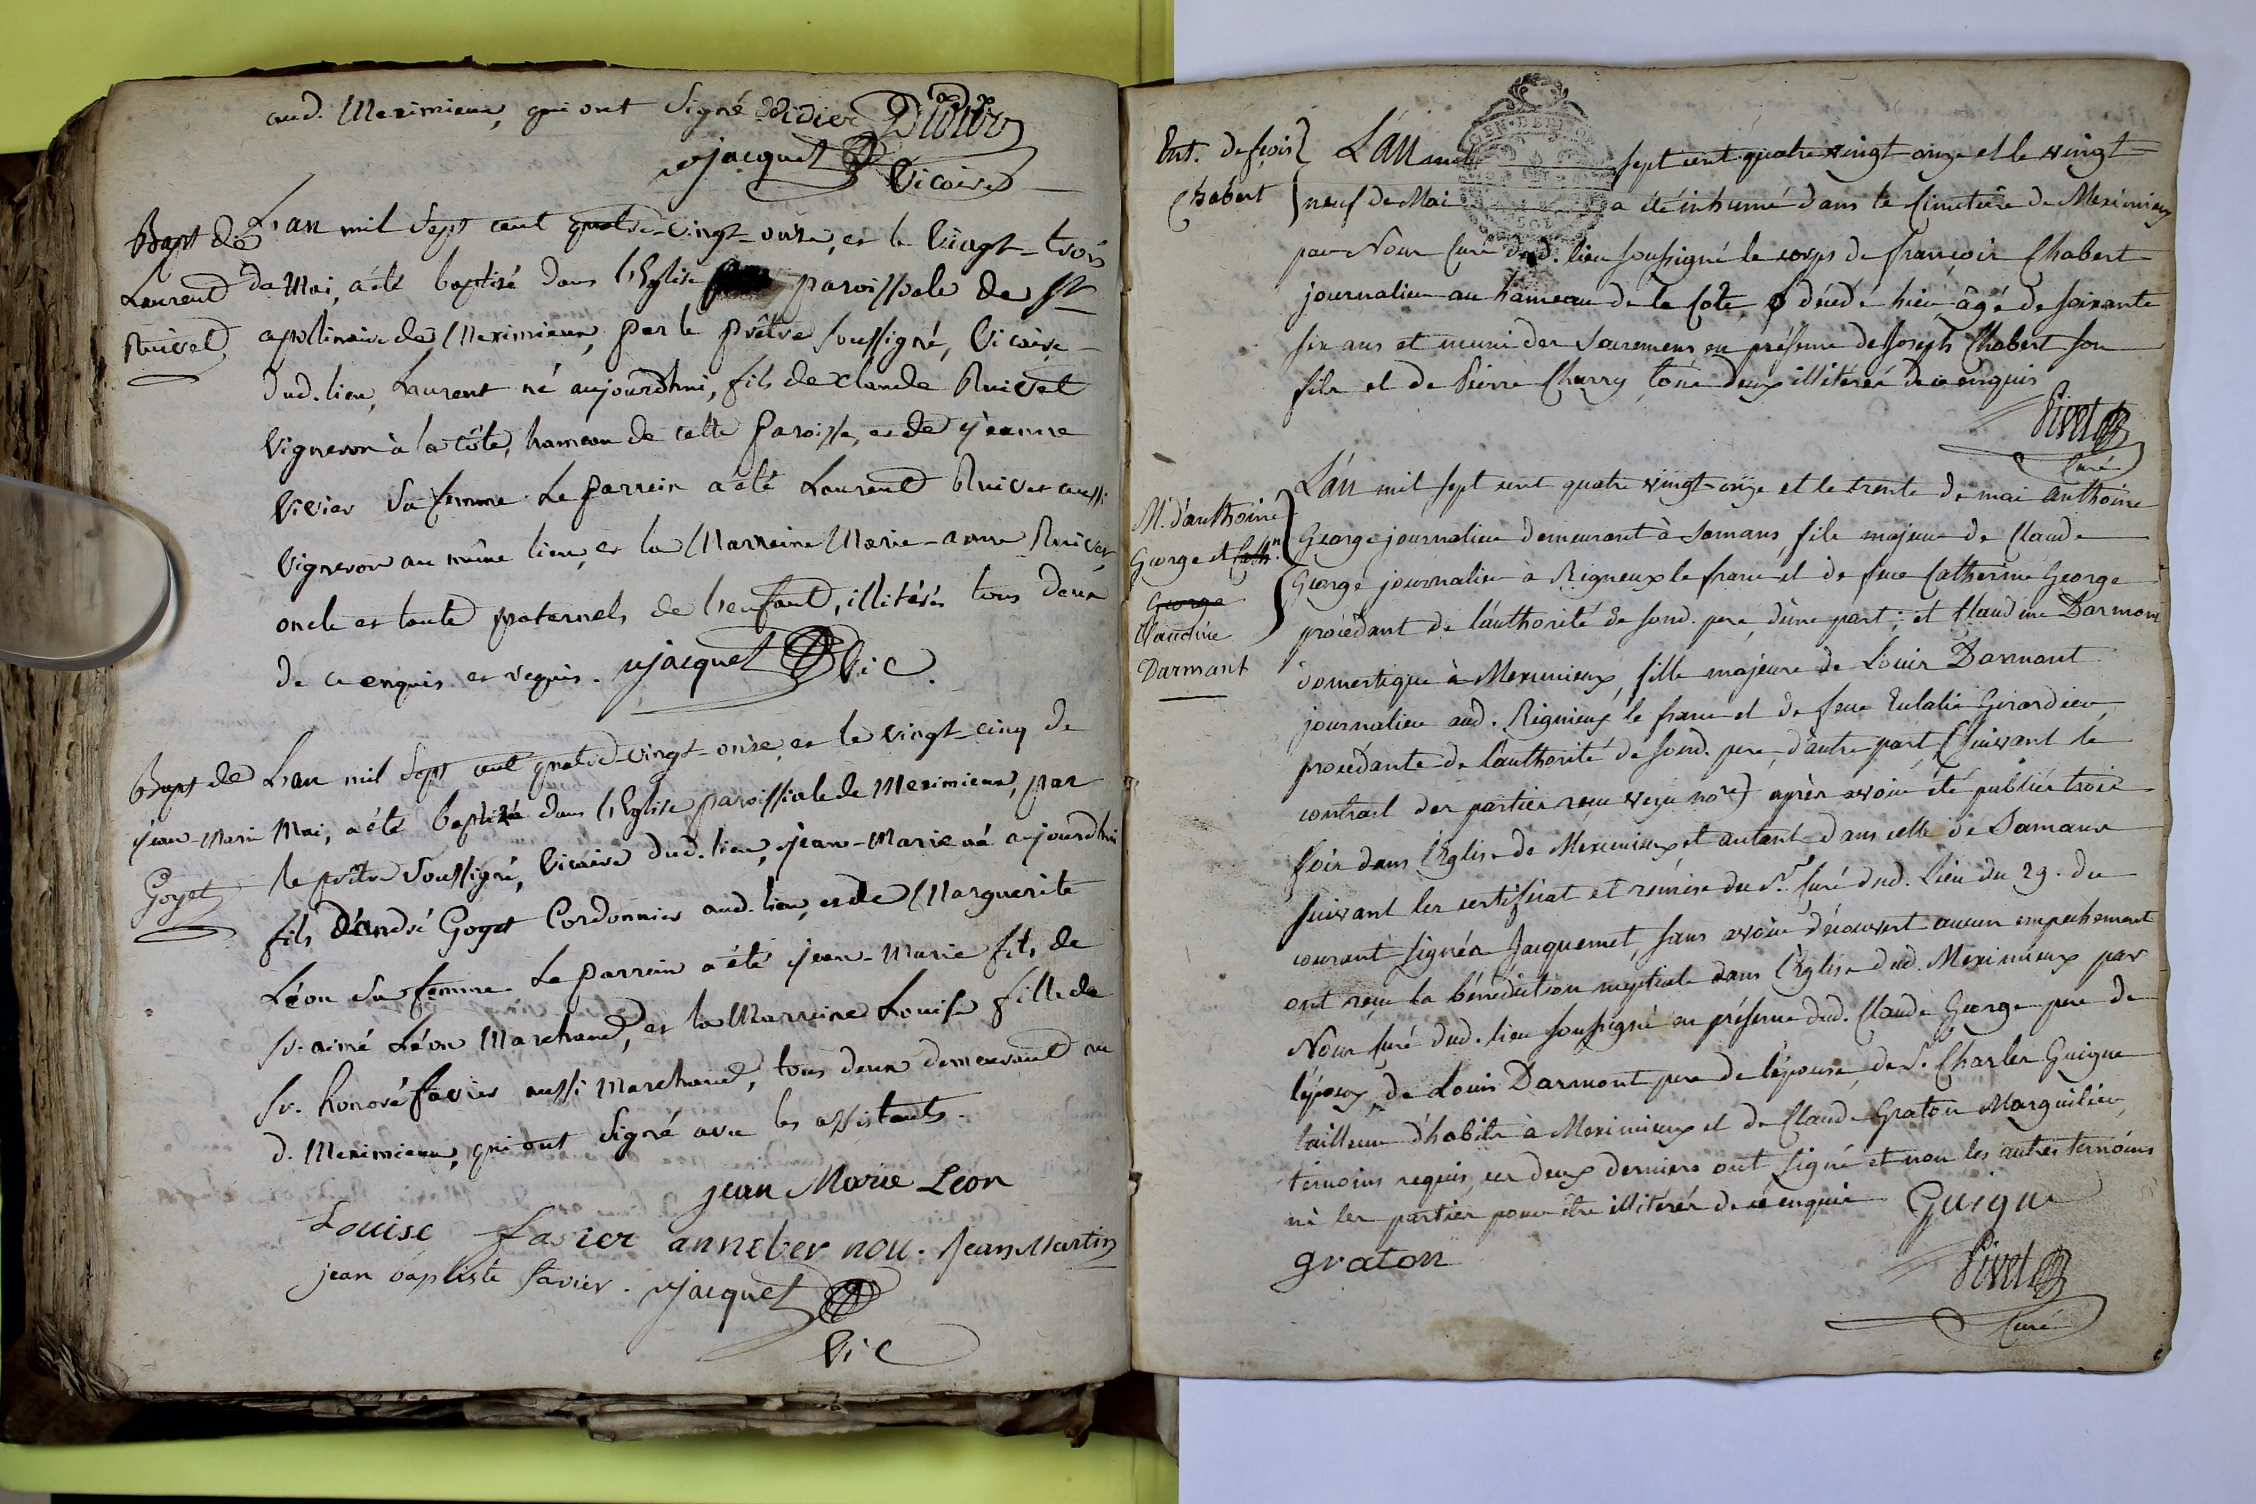 aud. Meximieux, qui ont signé Didier Didier
Jacquet
Vicaire
Bapt de
Laurent
Ruivet
L'an mil sept cent quatre-vingt-onze, et le vingt-trois
de Mai, a été baptisé dans l'Eglise paroissiale de St
apollinaire de Meximieux, par le prêtre soussigné, vicaire
dud. lieu, Laurent né aujourdhui, fils de claude Ruivet
vigneron à la côte, hameau de cette paroisse, et de jeanne
Vivier sa femme. Le parrein a été Laurent Ruivet aussi
vigneron au même lieu, et la Marreine Marie-anne Ruivet
oncle et tante paternels de l'enfant, illitérés tous deux
de ce enquis et requis. Jacquet Vic.
Bapt de
jean-Marie
Goyet
L'an mil sept cent quatre-vingt-onze, et le vingt-cinq de
Mai, a été baptisé dans l'Eglise paroissiale de Meximieux, par
le prêtre soussigné, vicaire dud. lieu, jean-Marie né aujourdhui
fils d'andré Goyet Cordonnier aud. lieu, et de Marguerite
Léon sa femme. Le parrein a été jean-Marie fils de
sr. aimé Léon Marchand, et la Marreine Louise fille de
sr. honoré favier aussi Marchand, tous deux demeurant au
d. Meximieux, qui ont signé avec les assistants.
jean Marie Leon
Louise favier anne Jean Martin
jean baptiste favier. Jacquet
Vic
Ent. de fçois
Chabert
L'an mil sept cent quatre vingt onze et le vingt
neuf de Mai a été inhumé dans le Cimetière de Meximieux
par Nous Curé dud. lieu soussigné le corps de françois Chabert
journalier au hameau de la Côte, décédé hier, âgé de soixante
six ans et muni des Sacremens en présence de Joseph Chabert son
fils et de Pierre Charry, tous deux illitérés de ce enquis
Pivet
Curé
M. d'anthoine
George et Cath.ne
George
Claudine
Darmant
L'an mil sept cent quatre vingt-onze et le trente de mai anthoine
George journalier demeurant à Samans, fils majeur de Claude
George journalier à Rigneux le franc et de feue Catherine George
procédant de l'authorité de sond. pere, d'une part; et Claudine Darmont
domestique à Meximieux, fille majeure de Louis Darmont
journalier aud. Rignieux le franc et de feue Eulalie Girardier,
procédante de l'authorité de sond. pere, d'autre part, (suivant le
contract des parties reçu nore) après avoir été publiés trois
fois dans l'Eglise de Meximieux et autant dans celle de Samans
suivant les certificat et rémise du Sr. Curé dud. lieu du 29. du
courant signés Jacquemet, sans avoir découvert aucun empechement
ont reçu la bénédiction nuptiale dans l'Eglise dud. Meximieux par
Nous Curé dud. lieu soussigné en présence dud. Claude George pere de
l'époux, de Louis Darmont pere de l'épouse, de Sr. Charles Guigue
tailleur d'habits à Meximieux et de Claude Graton Marguilier,
temoins requis, ces deux derniers ont signé et non les autres temoins
ni les parties pour être illitérés de ce enquis Guigue
graton
Pivet
Curé